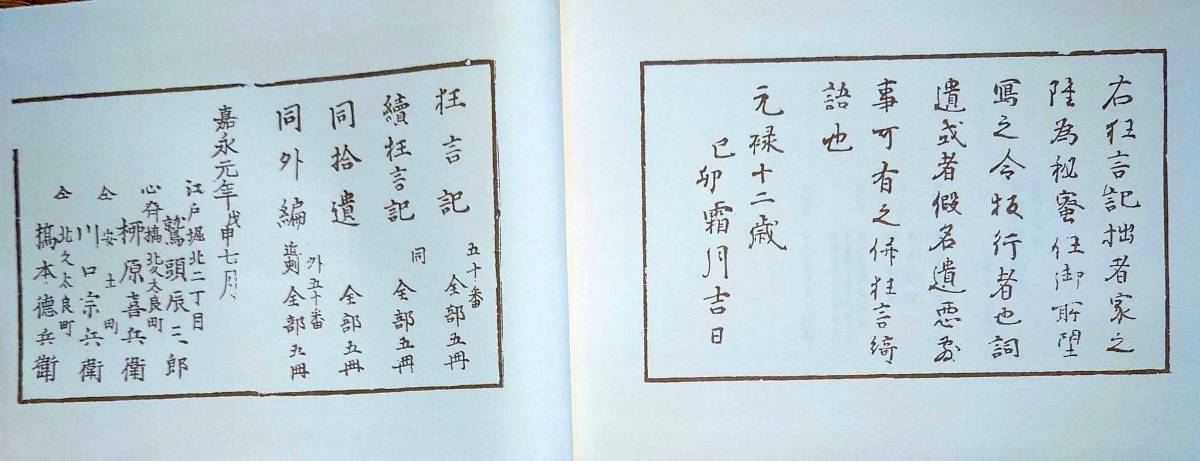 右狂言記拙者家之
陸為秘蜜任御所望
寫之令板行者也詞
遺或者假名遺悪敷
事可有之併狂言綺
語也
元禄十二歳
己卯霜月吉日
狂言記 五十番 全部五冊
續狂言記 同 全部五冊
同拾遺 全部五冊
同外編 外五十番 近刻 全部五冊
嘉永元年戊申七月
江戸堀北二丁目
鷲頭辰二郎
心斎橋北久太良町
柳原喜兵衛
仝 安土町
川口宗兵衛
仝 北久太良町
橋本徳兵衛